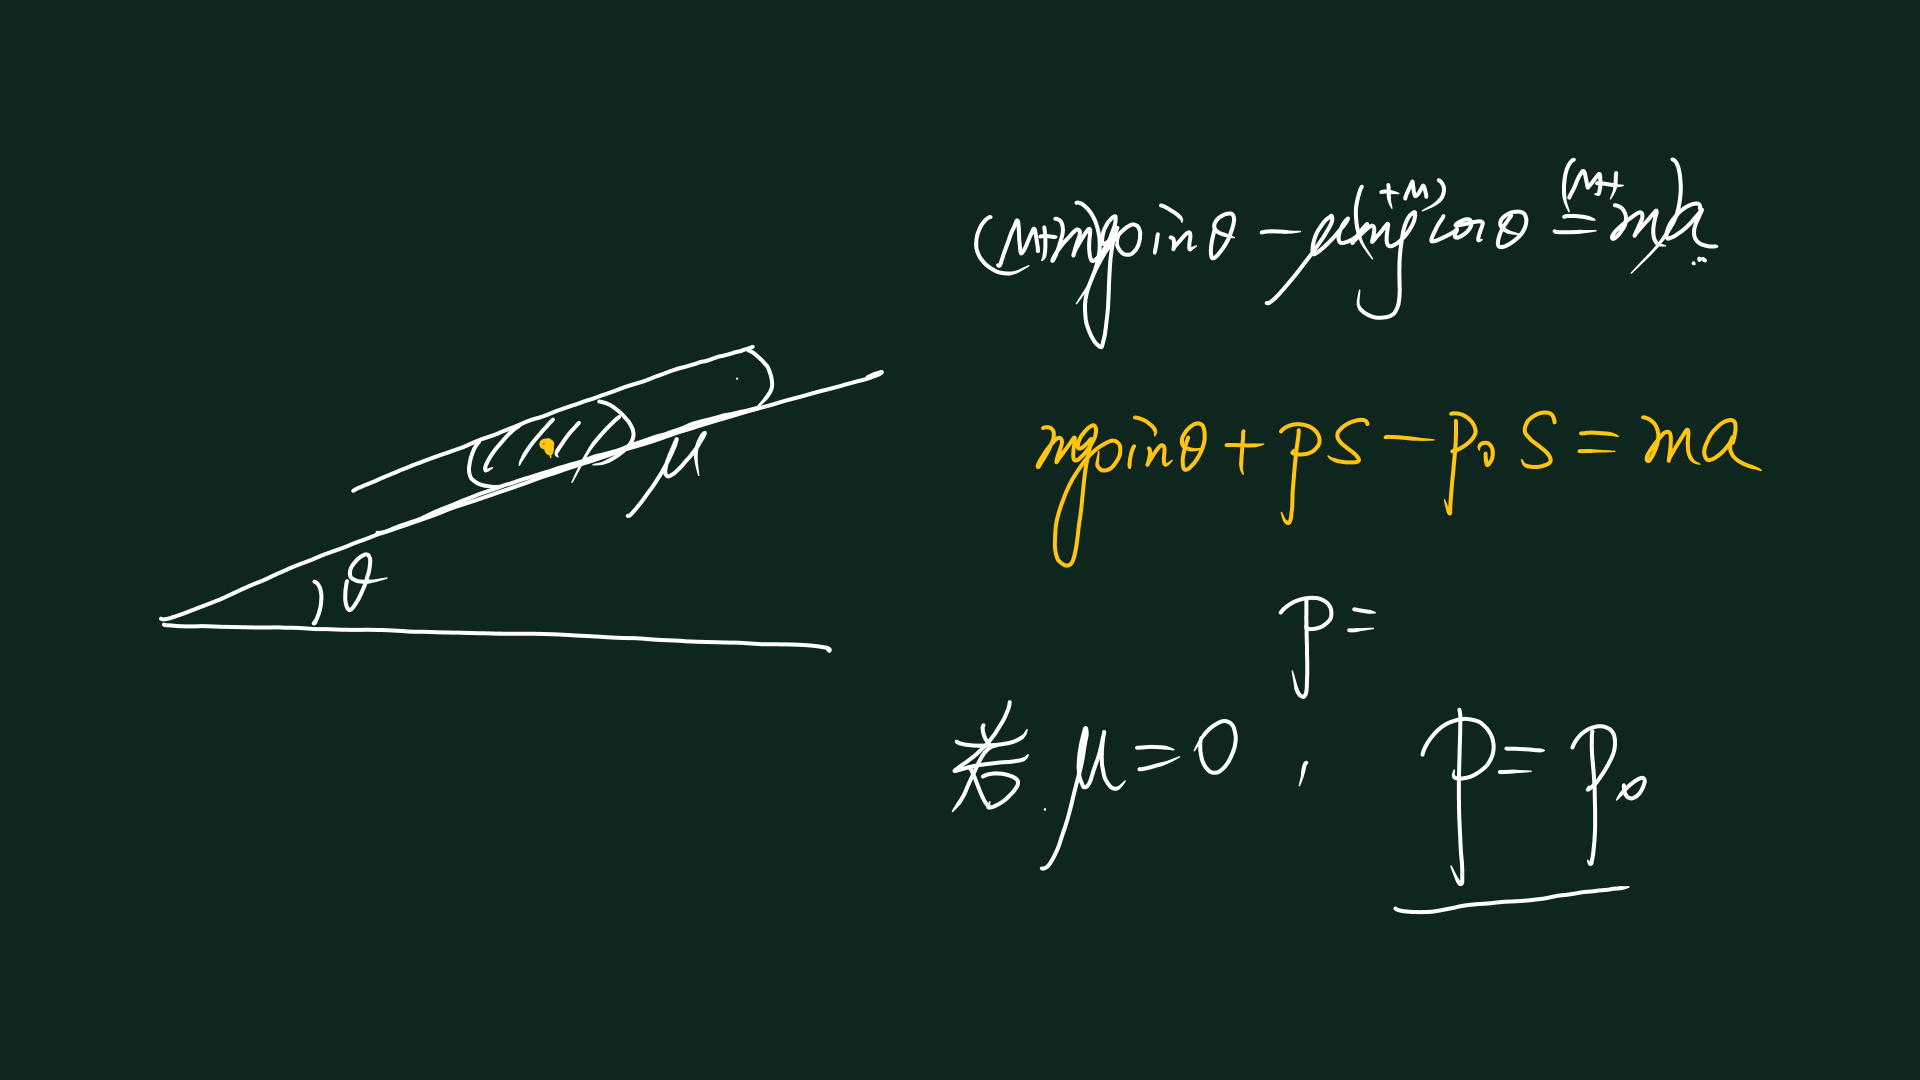 (M+m)g sinθ - μ(m+M)g cosθ = (M+m)a
mg sinθ + pS - p₀S = ma
μ
θ
p =
若 μ = 0 , p = p₀